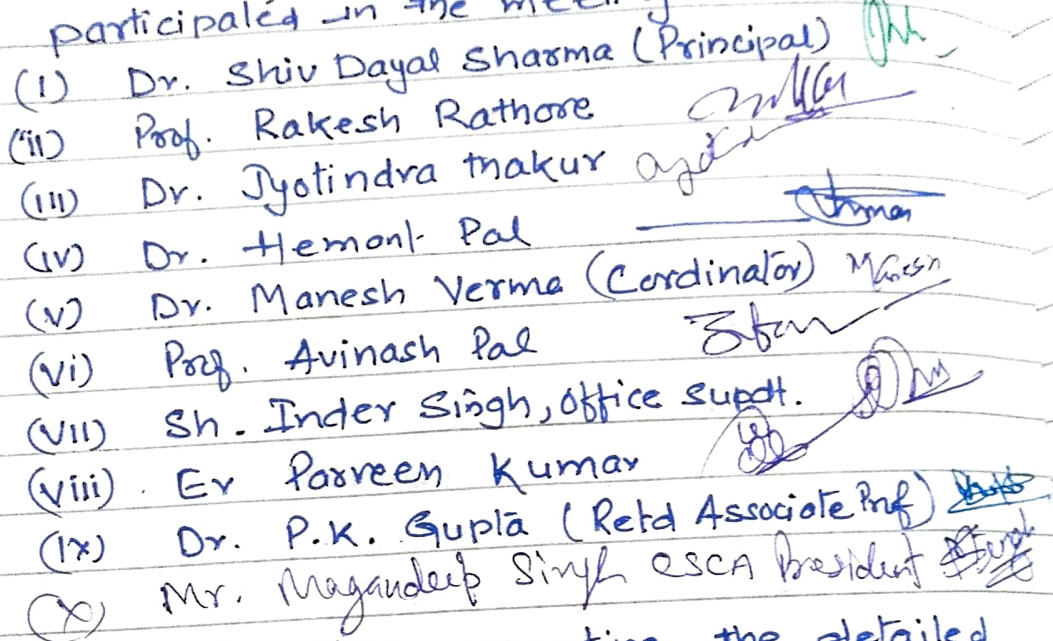 participated in the
(i) Dr. Shiv Dayal Sharma (Principal)
(ii) Prof. Rakesh Rathore
(iii) Dr. Jyotindra Thakur
(iv) Dr. Hemant Pal
(v) Dr. Manesh Verma (Cordinator) Manesh
(vi) Prof. Avinash Pal
(vii) Sh. Inder Singh, Office Supdt.
(viii). Er Parveen Kumar
(ix) Dr. P.K. Gupta (Retd Associate Prof)
(x) Mr. Magandeep Singh CSCA President
the detailed